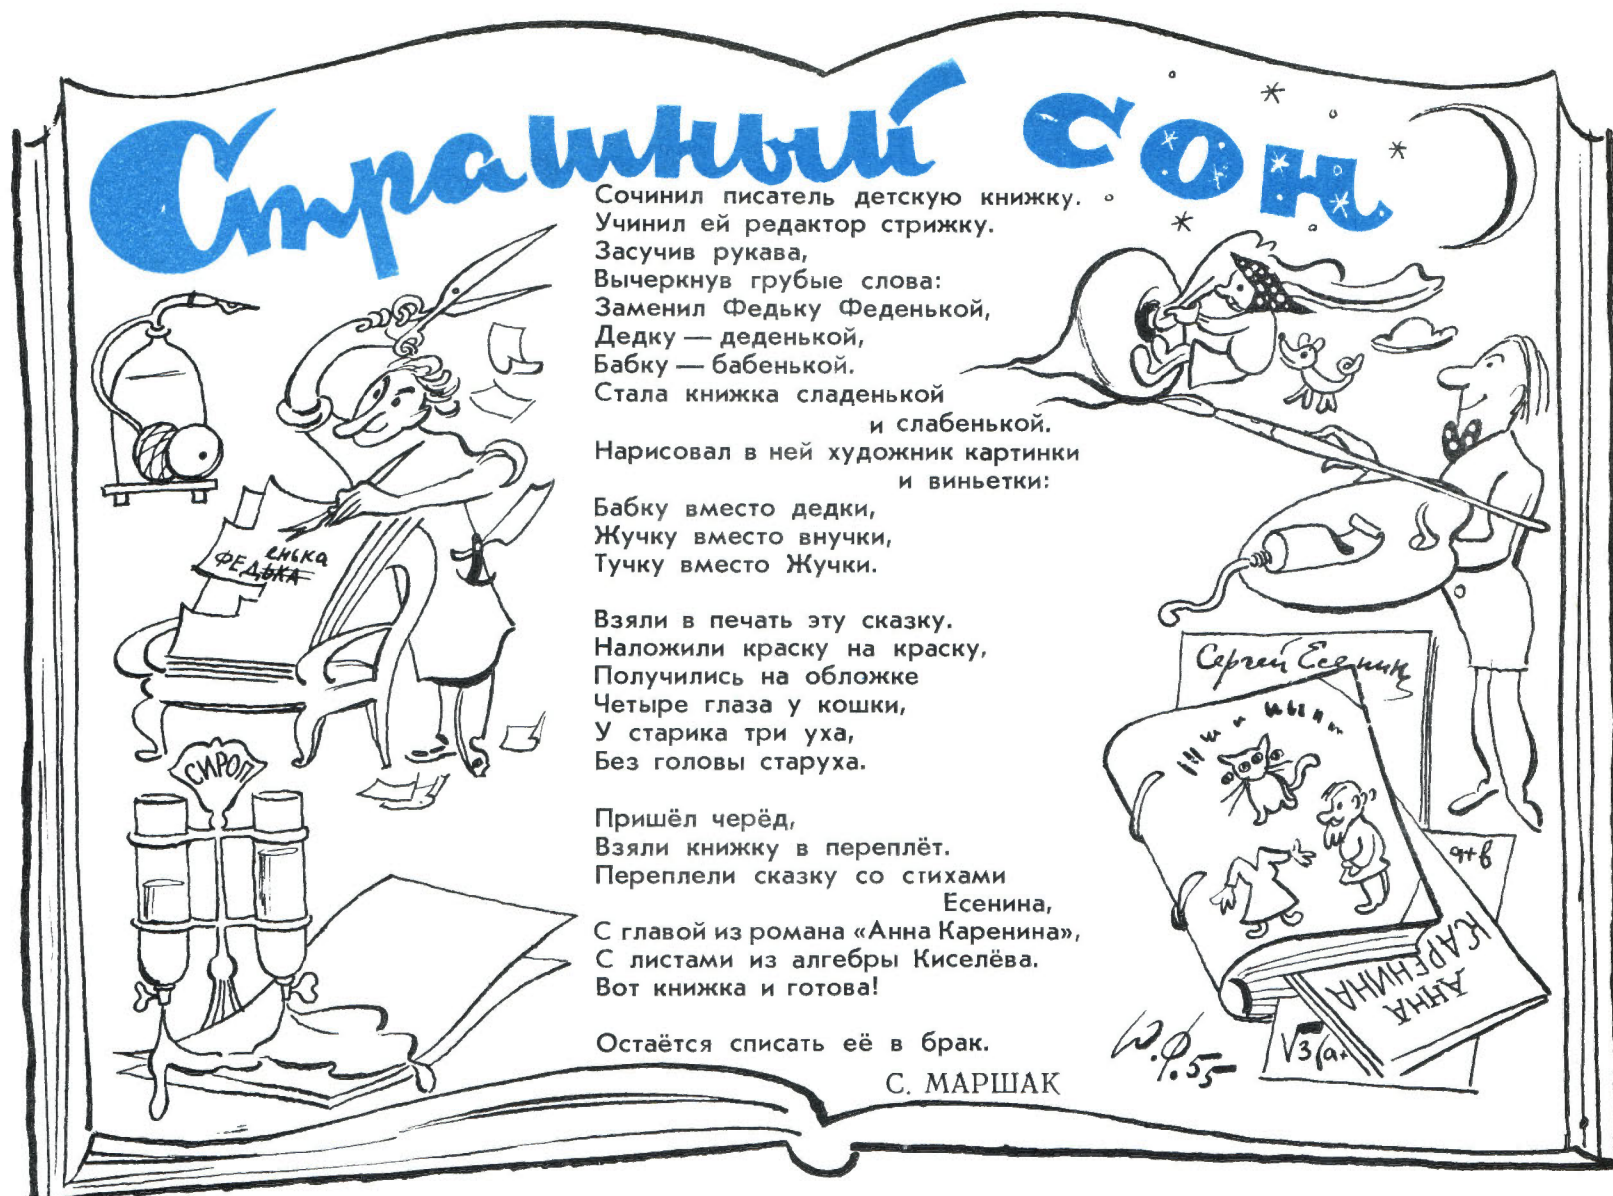 Страшный сон
Сочинил писатель детскую книжку.
Учинил ей редактор стрижку.
Засучив рукава,
Вычеркнув грубые слова:
Заменил Федьку Феденькой,
Дедку — деденькой,
Бабку — бабенькой.
Стала книжка сладенькой
и слабенькой.
Нарисовал в ней художник картинки
и виньетки:
Бабку вместо дедки,
Жучку вместо внучки,
Тучку вместо Жучки.
Взяли в печать эту сказку.
Наложили краску на краску,
Получились на обложке
Четыре глаза у кошки,
У старика три уха,
Без головы старуха.
Пришёл черёд,
Взяли книжку в переплёт.
Переплели сказку со стихами
Есенина,
С главой из романа «Анна Каренина»,
С листами из алгебры Киселёва.
Вот книжка и готова!
Остаётся списать её в брак.
С. МАРШАК
енька
ФЕДЬКА
СИРОП
Сергей Есенин
а+в
АННА
КАРЕНИНА
√3(а+
Ю.Ф.55